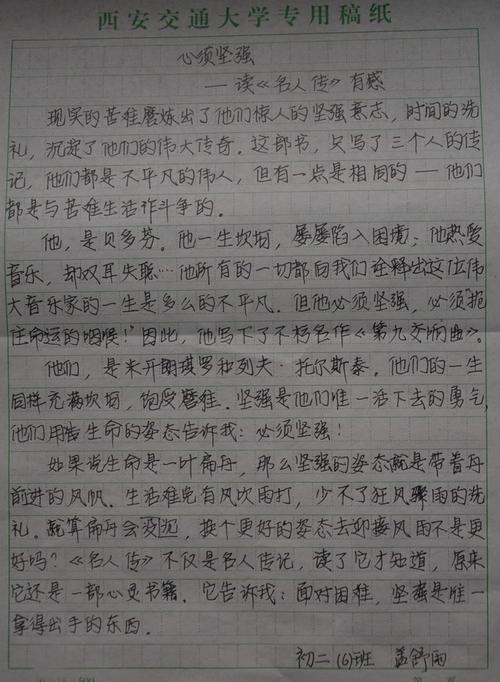 西安交通大学专用稿纸
心须坚强
——读《名人传》有感
现实的苦难磨炼出了他们惊人的坚强意志，时间的洗
礼，沉淀了他们的伟大传奇。这部书，只写了三个人的传
记，他们都是不平凡的伟人，但有一点是相同的——他们
都是与苦难生活作斗争的。
他，是贝多芬。他一生坎坷，屡屡陷入困境；他热爱
音乐，却双耳失聪…他所有的一切都向我们诠释出这位伟
大音乐家的一生是多么的不平凡。但他必须坚强，必须“扼
住命运的咽喉！”因此，他写下了不朽名作《第九交响曲》。
他们，是米开朗琪罗和列夫·托尔斯泰。他们的一生
同样充满坎坷，饱受磨难。坚强是他们唯一活下去的勇气，
他们用着生命的姿态告诉我：必须坚强！
如果说生命是一叶扁舟，那么坚强的姿态就是带着舟
前进的风帆。生活难免有风吹雨打，少不了狂风骤雨的洗
礼。就算扁舟会没迹，换个更好的姿态去迎接风雨不是更
好吗？《名人传》不仅是名人传记，读了它才知道，原来
它还是一部心灵书籍。它告诉我：面对困难，坚强是唯一
拿得出手的东西。
初二（6）班 孟舒雨